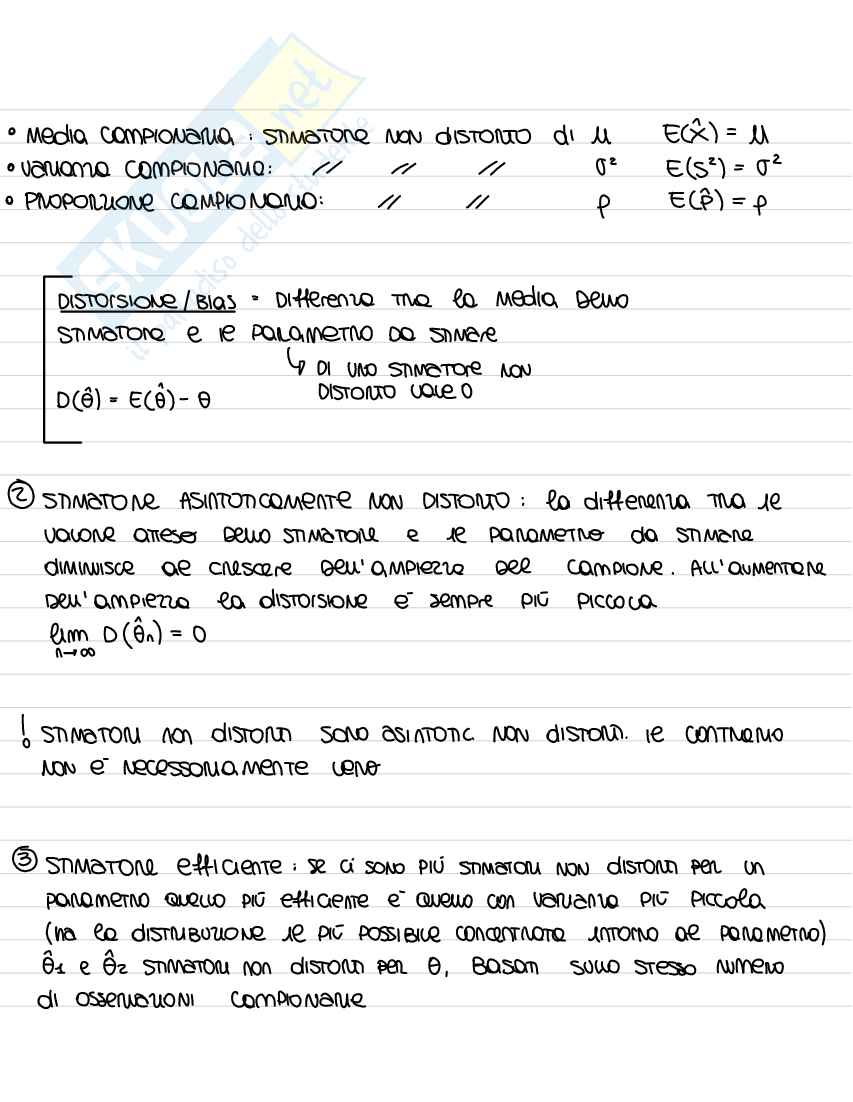 • MEDIA CAMPIONARIA : STIMATORE NON DISTORTO di μ E(X̂) = μ
• VARIANZA CAMPIONARIA: // // // σ² E(S²) = σ²
• PROPORZIONE CAMPIONARIA: // // p E(p̂) = p
DISTORSIONE / BIAS = DIFFERENZA TRA la MEDIA DELLO
STIMATORE E IL PARAMETRO DA STIMARE
↳ DI UNO STIMATORE NON
DISTORTO VALE 0
D(θ̂) = E(θ̂) - θ
② STIMATORE ASINTOTICAMENTE NON DISTORTO : la differenza TRA il
VALORE ATTESO DELLO STIMATORE e il PARAMETRO da STIMARE
DIMINUISCE al CRESCERE DELL'AMPIEZZA DEL CAMPIONE. ALL'AUMENTARE
DELL'AMPIEZZA la DISTORSIONE È SEMPRE PIÙ PICCOLA
lim D(θ̂n) = 0
n→∞
! STIMATORI NON DISTORTI SONO ASINTOTIC. NON DISTORTI. IL CONTRARIO
NON È NECESSARIAMENTE VERO
③ STIMATORE EFFICIENTE : SE CI SONO PIÙ STIMATORI NON DISTORTI PER UN
PARAMETRO QUELLO PIÙ EFFICIENTE È QUELLO CON VARIANZA PIÙ PICCOLA
(HA la DISTRIBUZIONE il PIÙ POSSIBILE CONCENTRATA INTORNO al PARAMETRO)
θ̂1 e θ̂2 STIMATORI NON DISTORTI PER θ, BASATI SULLO STESSO NUMERO
di OSSERVAZIONI CAMPIONARIE
SKUOLA.net
il paradiso dello studente